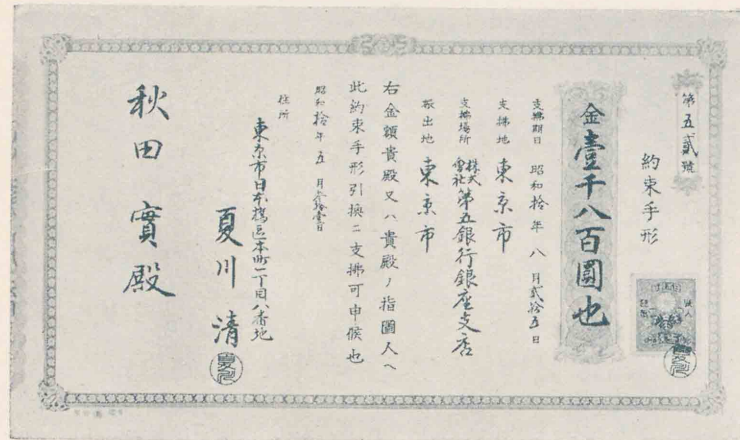 第五貳號
約束手形
金壹千八百圓也
支拂期日 昭和拾年八月貳拾五日
支拂地 東京市
支拂場所 株式會社第五銀行銀座支店
振出地 東京市
右金額貴殿又ハ貴殿ノ指圖人へ
此約束手形引換ニ支拂可申候也
昭和拾年五月 日
住所
東京市日本橋區本町一丁目八番地
夏川清
秋田實殿